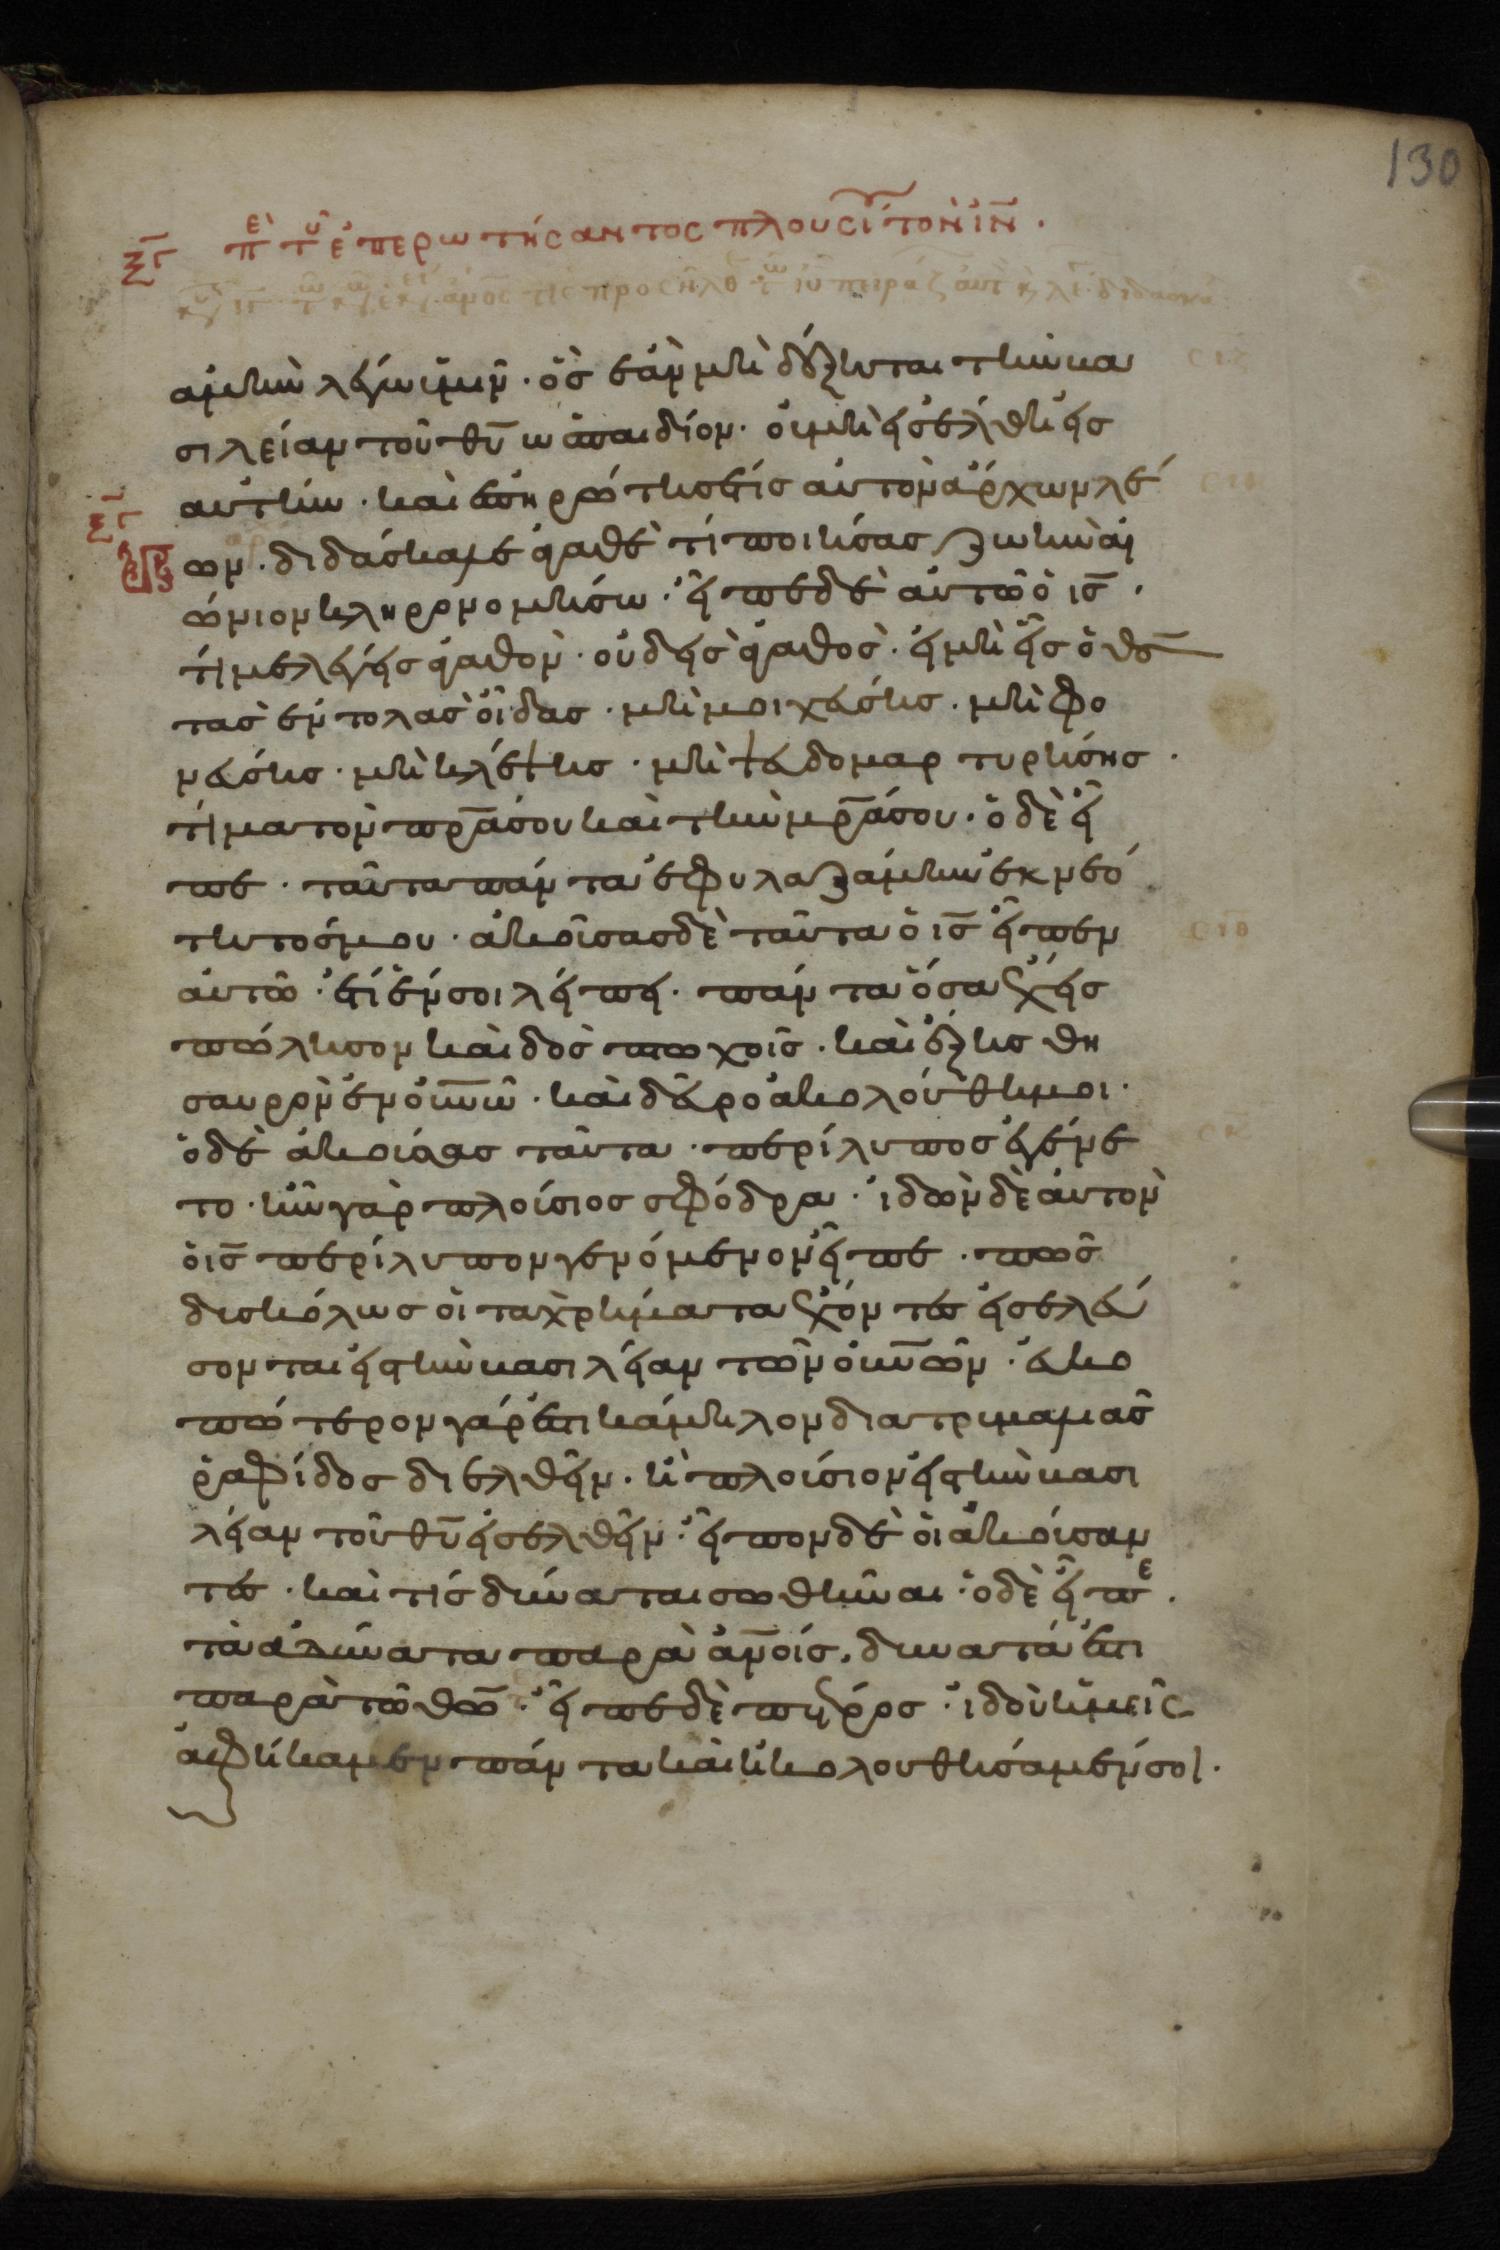 130
ξγ πε τυ επερωτησαντος πλουσι τον ιν.
αμὴν λέγω ὑμῖν. ὃς ἐὰν μὴ δέξηται τὴν βα
σιλείαν τοῦ θυ ὡς παιδίον. οὐ μὴ εἰσέλθη εἰς
αὐτήν. καὶ ἐπηρώτησέ τίς αὐτὸν ἄρχων λέγ
ων. διδάσκαλε ἀγαθὲ τί ποιήσας ζωὴν αἰ
ώνιον κληρονομήσω. εἶπε δὲ αὐτῶ ὁ ις.
τί με λέγεις ἀγαθόν. οὐδεὶς ἀγαθὸς. εἰ μὴ εἷς ὁ θς
τὰς ἐντολὰς οἶδας. μὴ μοιχεύσης. μὴ φο
νεύσης. μὴ κλέψης. μὴ ψευδομαρτυρήσης.
τίμα τὸν πρα σου καὶ τὴν μρα σου. ὁ δὲ εἶ
πε. ταῦτα πάντα ἐφυλαξάμην ἐκ νεό
τητός μου. ἀκούσας δὲ ταῦτα ὁ ις εἶπεν
αὐτῶ. ἔτι ἕν σοι λείπει. πάντα ὅσα ἔχεις
πώλησον καὶ δὸς πτωχοῖς. καὶ ἕξεις θη
σαυρὸν ἐν οὐνω. καὶ δεῦρο ἀκολούθει μοι.
ὁ δὲ ἀκούσας ταῦτα. περίλυπος ἐγένε
το. ἦν γὰρ πλούσιος σφόδρα. ἰδὼν δὲ αὐτὸν
ὁ ις περίλυπον γενόμενον εἶπε. πῶς
δυσκόλως οἱ τὰ χρήματα ἔχοντες εἰσελεύ
σονται εἰς τὴν βασιλείαν τῶν οὐνων. εὐκο
πώτερον γάρ ἐστι κάμηλον διὰ τρυμαλιᾶς
ῥαφίδος διελθεῖν. ἢ πλούσιον εἰς τὴν βασι
λείαν τοῦ θυ εἰσελθεῖν. εἶπον δὲ οἱ ἀκούσαν
τες. καὶ τίς δύναται σωθῆναι. ὁ δὲ εἶπε.
τὰ ἀδύνατα παρὰ ἀνοις, δυνατά ἐστι
παρὰ τῶ θω. εἶπε δὲ πέτρος. ἰδοὺ ἡμεῖς
ἀφήκαμεν πάντα καὶ ἠκολουθήσαμέν σοι.